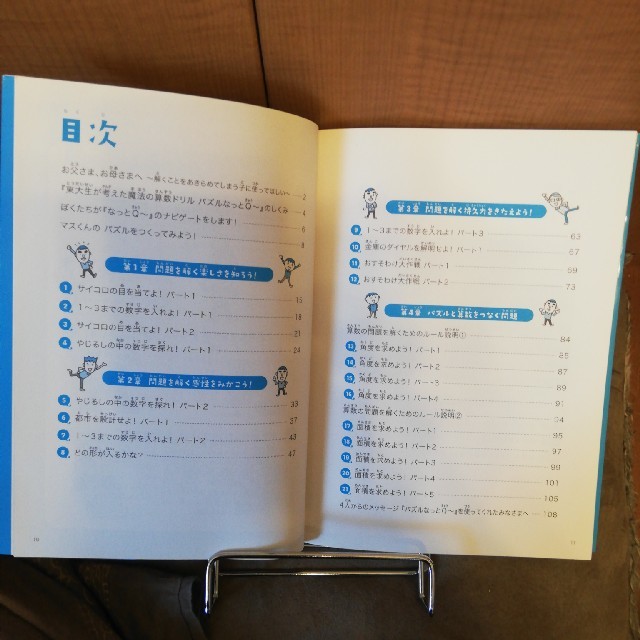 目次
お父さま、お母さまへ 〜解くことをあきらめてしまう子に使ってほしい〜 2
『東大生が考えた魔法の算数ドリル パズルなっとQ〜』のしくみ 4
ぼくたちが『なっとQ〜』のナビゲートをします! 6
マスくんの パズルをつくってみよう! 8
第1章 問題を解く楽しさを知ろう!
1 サイコロの目を当てよ! パート1 15
2 1〜3までの数字を入れよ! パート1 18
3 サイコロの目を当てよ! パート2 21
4 やじるしの中の数字を探れ! パート1 24
第2章 問題を解く感性をみがこう!
5 やじるしの中の数字を探れ! パート2 33
6 都市を設計せよ! パート1 37
7 1〜3までの数字を入れよ! パート2 43
8 どの形が入るかな? 47
10
第3章 問題を解く持久力をきたえよう!
9 1〜3までの数字を入れよ! パート3 63
10 金庫のダイヤルを解明せよ! パート1 67
11 おすそわけ大作戦 パート1 69
12 おすそわけ大作戦 パート2 73
第4章 パズルと算数をつなぐ問題
算数の問題を解くためのルール説明① 84
13 角度を求めよう! パート1 85
14 角度を求めよう! パート2 87
15 角度を求めよう! パート3 89
16 角度を求めよう! パート4 91
算数の問題を解くためのルール説明② 94
17 面積を求めよう! パート1
18 面積を求めよう! パート2
19 面積を求めよう! パート3 99
20 面積を求めよう! パート4 101
21 面積を求めよう! パート5 105
4人からのメッセージ『パズルなっとQ〜』を使ってくれたみなさまへ 108
11